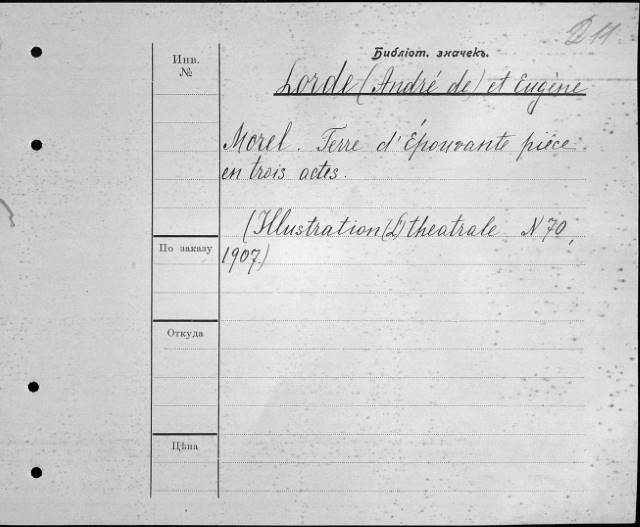 D 11
Инв.
№
Библіот. значекъ.
Lorde (André de) et Eugène
Morel. Terre d'Épouvante piéce
en trois actes.
(Illustration (L') theatrale N 70,
1907.)
По заказу
Откуда
Цѣна